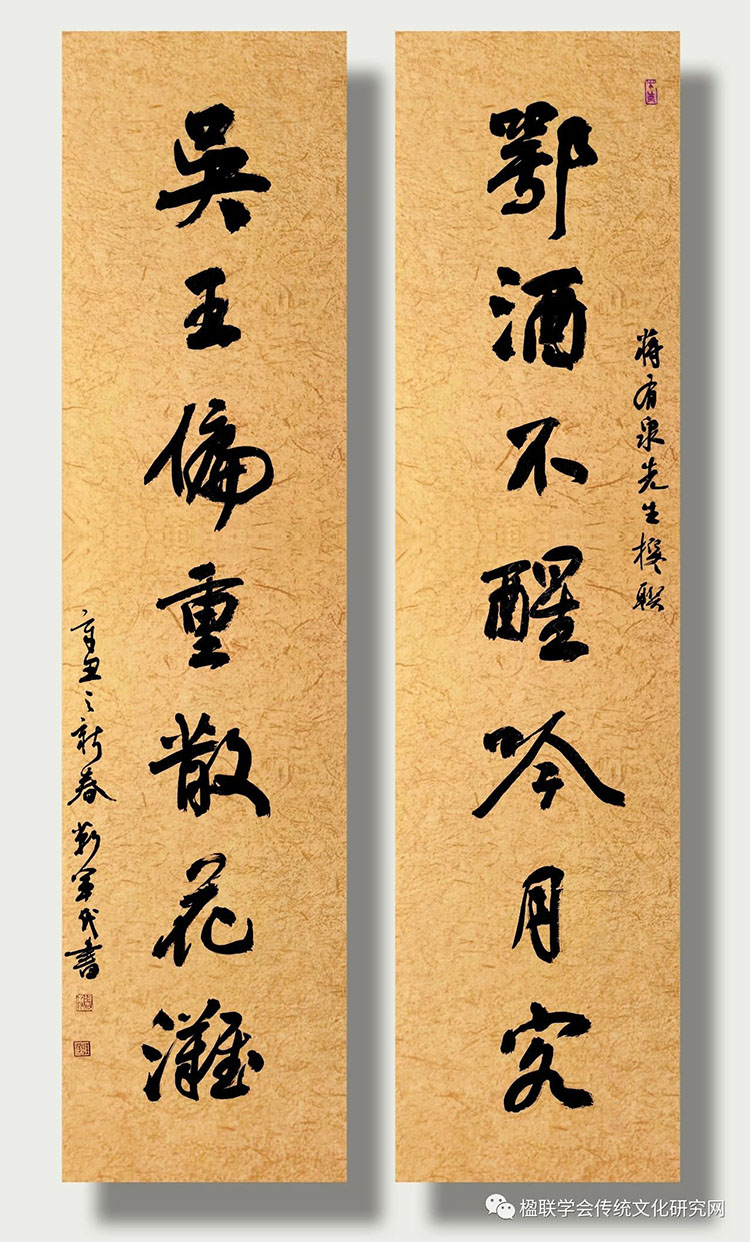 鄂酒不醒吟月客
蒋有泉先生撰联
吴王偏重散花滩
辛丑之新春
军代书
楹联学会传统文化研究网